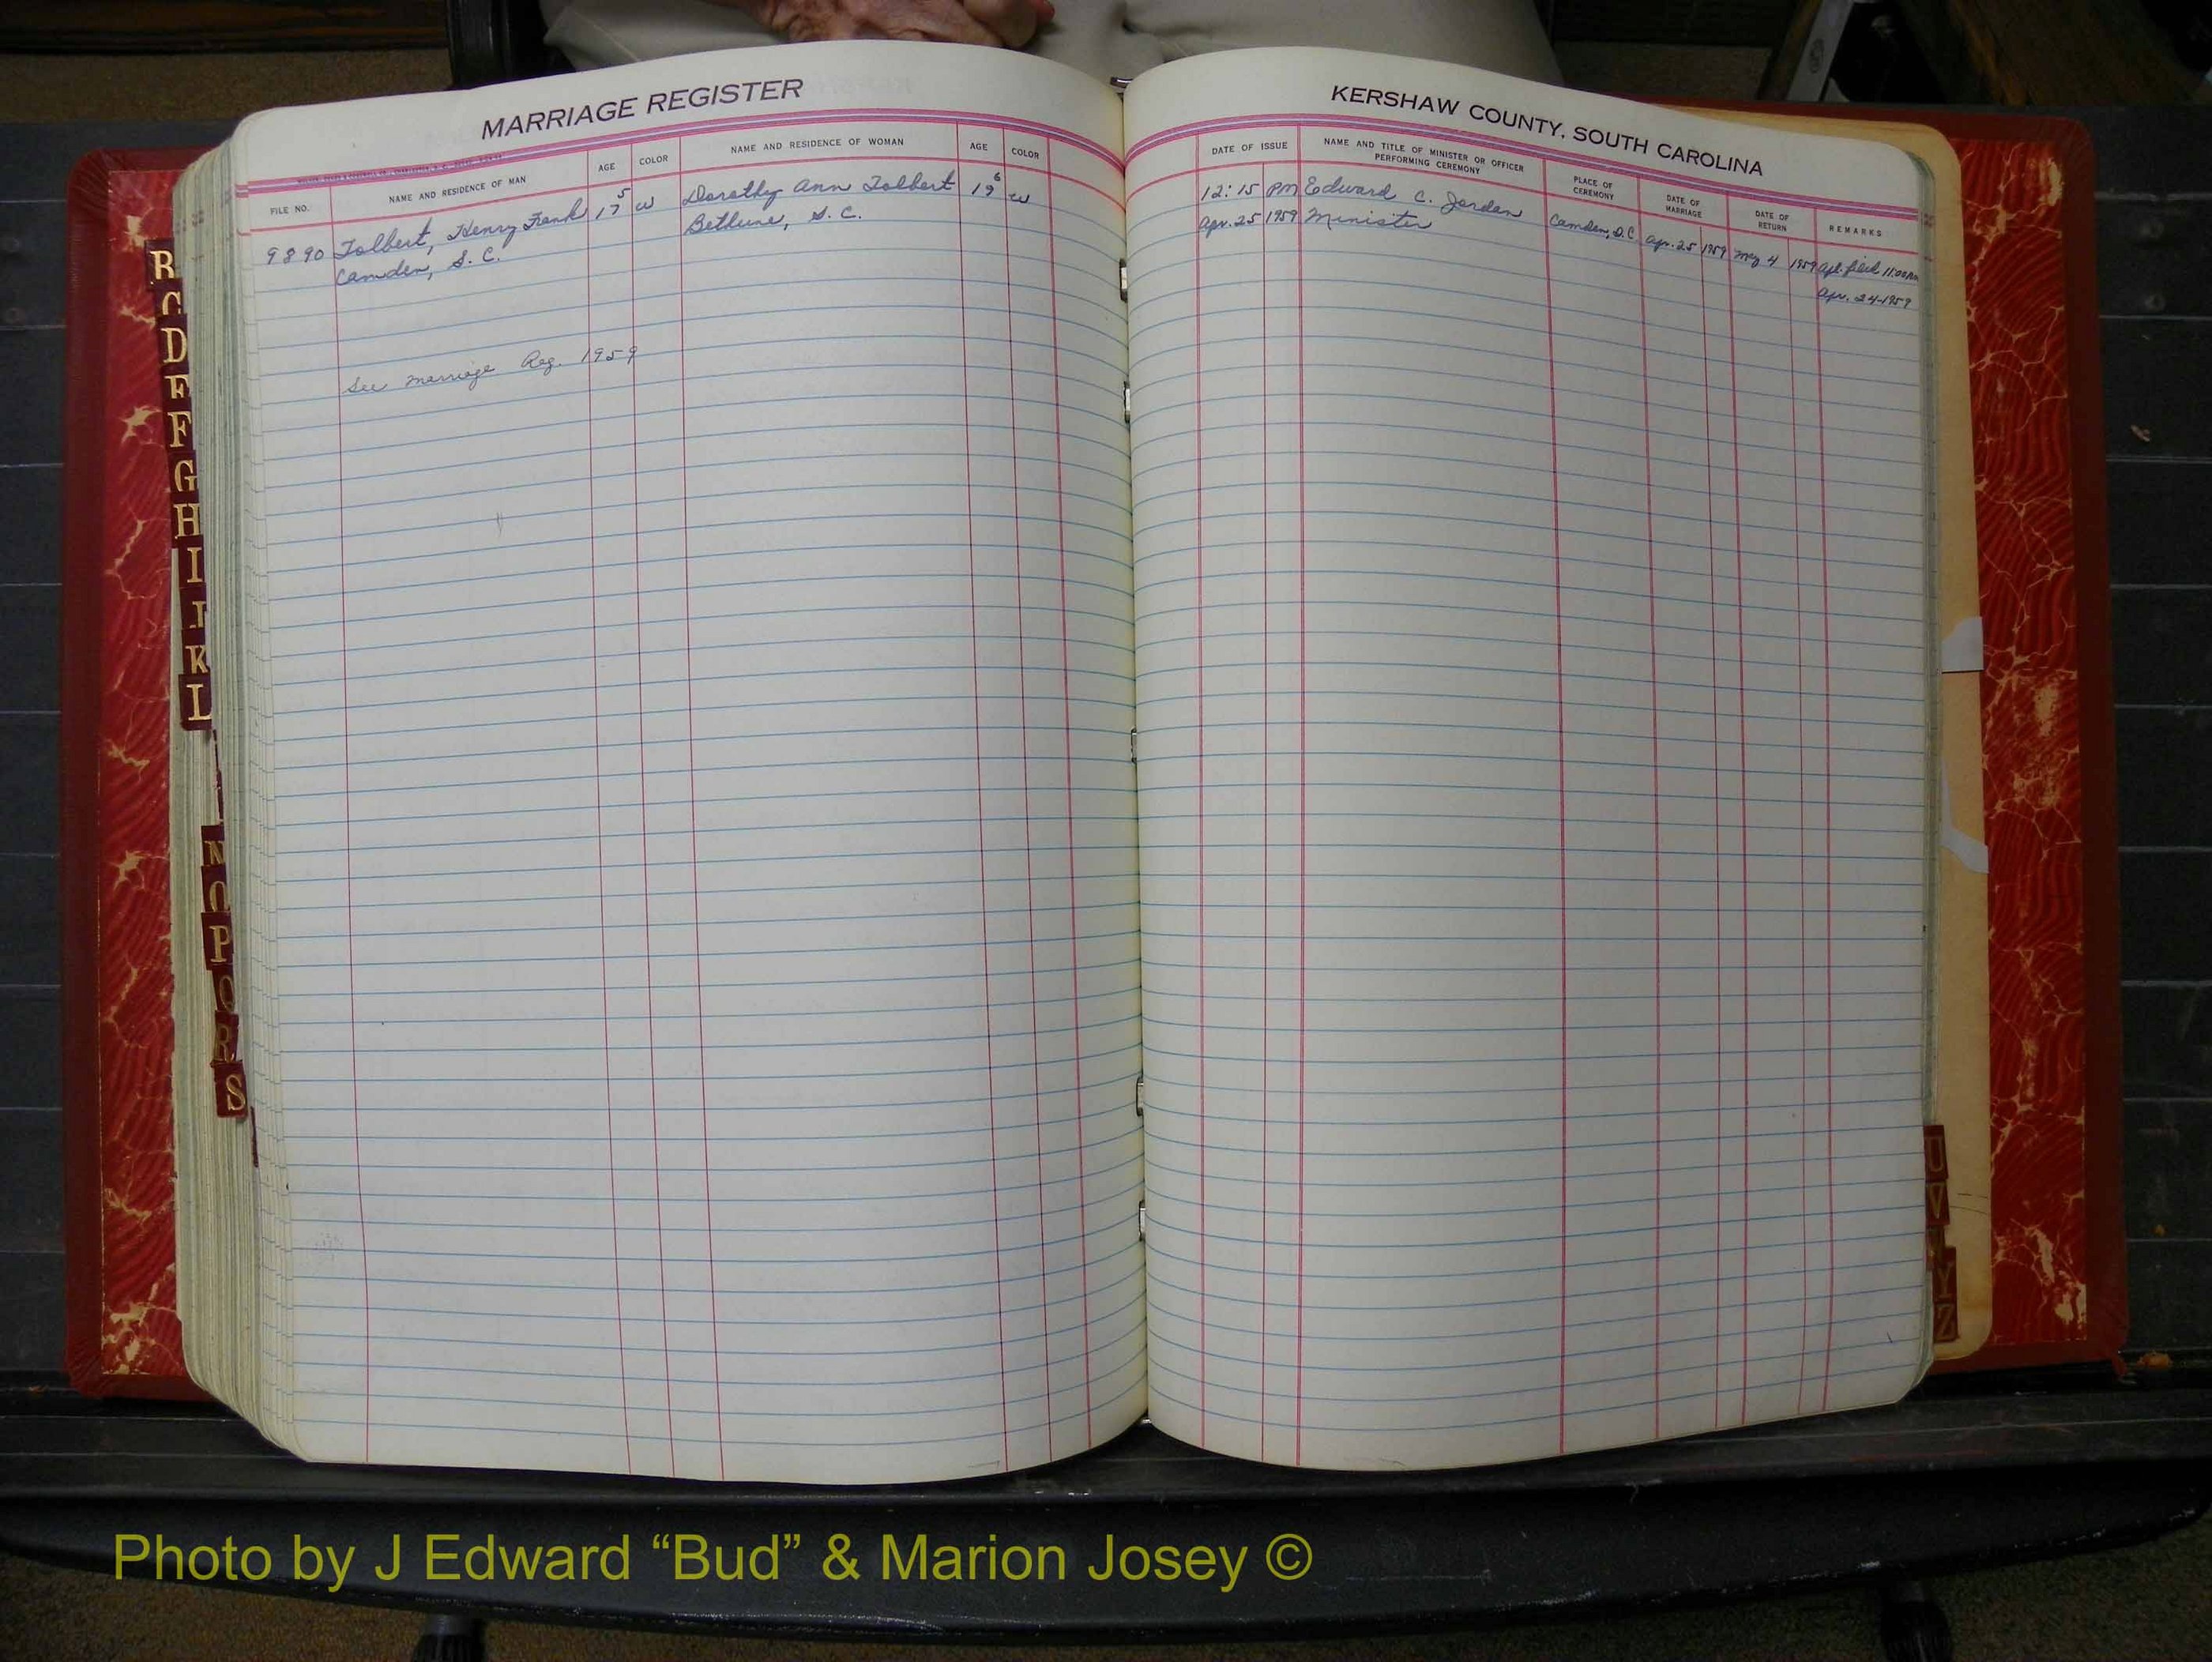 MARRIAGE REGISTER
FILE NO. NAME AND RESIDENCE OF MAN AGE COLOR NAME AND RESIDENCE OF WOMAN AGE COLOR
9890 Tolbert, Henry Frank 17 5 W Dorothy Ann Tolbert 19 6 W
Camden, S. C. Bethune, S. C.
See Marriage Reg. 1959
KERSHAW COUNTY, SOUTH CAROLINA
DATE OF ISSUE NAME AND TITLE OF MINISTER OR OFFICER PERFORMING CEREMONY PLACE OF CEREMONY DATE OF MARRIAGE DATE OF RETURN REMARKS
12:15 PM Edward C. Jordan
Apr. 25 1959 Minister Camden, S.C. Apr. 25 1959 May 4 1959 Apl. filed 11:00 AM
Apr. 24-1959
B
C
D
E
F
G
H
I
J
K
L
N
O
P
Q
R
S
U
V
Y
Z
Photo by J Edward “Bud” & Marion Josey ©